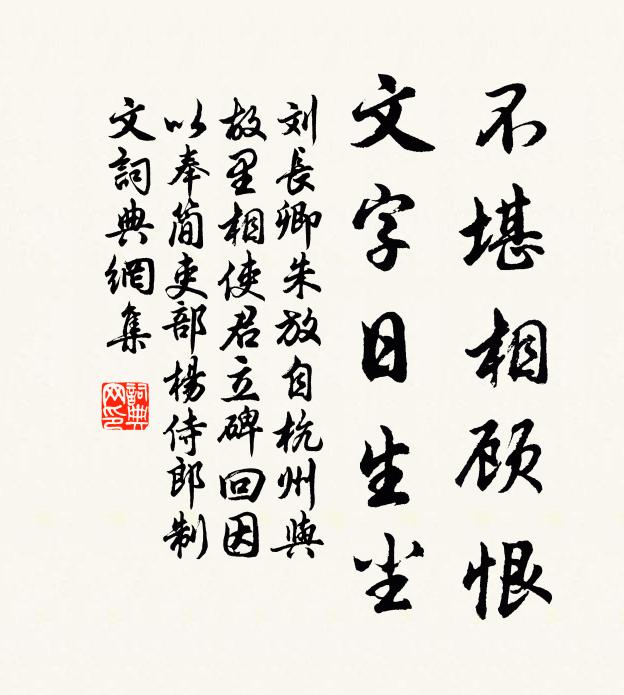 不堪相顾恨
文字日生尘
刘長卿朱放自杭州與
故里相使君立碑回因
以奉简吏部楊侍郎制
文詞典網集
詞典
网印